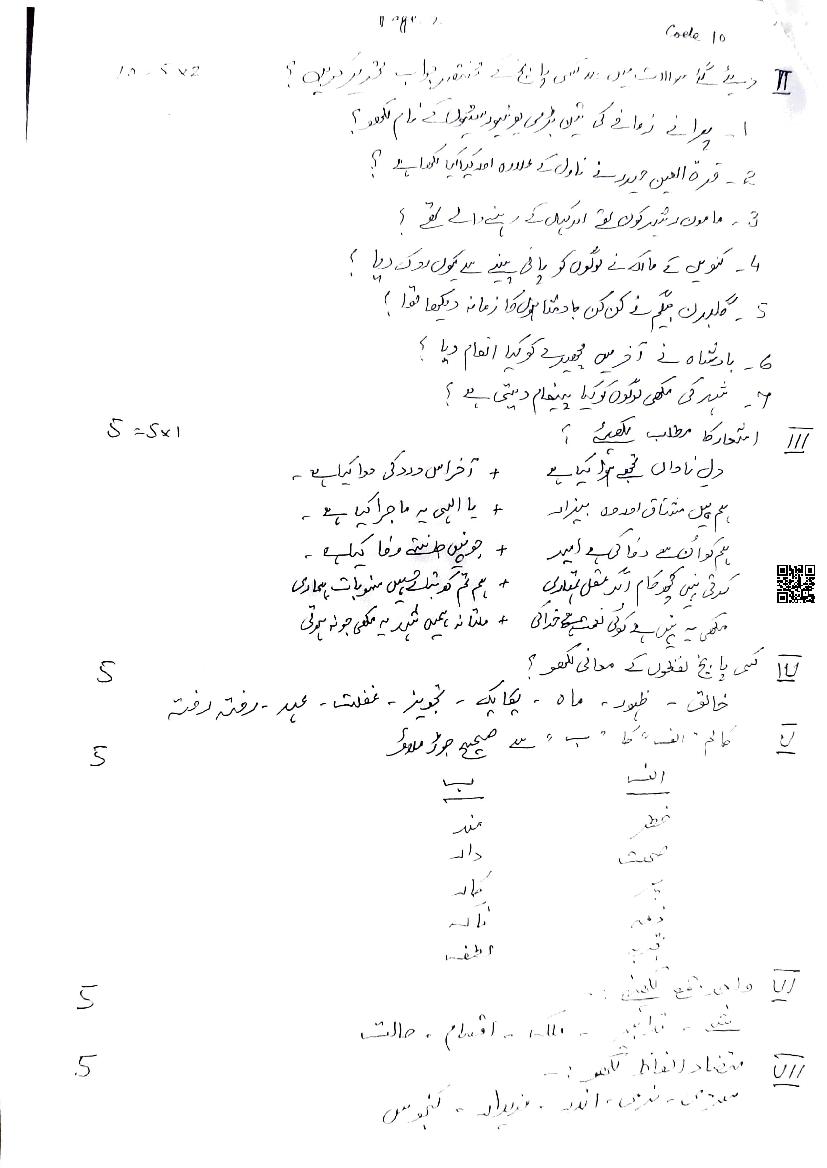 Page 2
Code 10
II دیئے گئے سوالات میں سے کسی پانچ کے مختصر جواب تحریر کریں؟ 10 = 5x2
1۔ پرانے زمانے کی تین بڑی یونیورسٹیوں کے نام لکھو؟
2۔ قرۃ العین حیدر نے ناول کے علاوہ اور کیا کیا لکھا ہے ؟
3۔ مامون رشید کون تھے اور کہاں کے رہنے والے تھے ؟
4۔ کنویں کے مالک نے لوگوں کو پانی پینے سے کیوں روک دیا ؟
5۔ گلبدن بیگم نے کن کن بادشاہوں کا زمانہ دیکھا تھا؟
6۔ بادشاہ نے آخر میں مچھیرے کو کیا انعام دیا ؟
7۔ شہد کی مکھی لوگوں کو کیا پیغام دیتی ہے ؟
III اشعار کا مطلب لکھیئے ؟ 5 = 5x1
دل ناداں تجھے ہوا کیا ہے + آخر اس درد کی دوا کیا ہے ۔
ہم ہیں مشتاق اور وہ بیزار + یا الہی یہ ماجرا کیا ہے ۔
ہم کو اُن سے وفا کی ہے امید + جو نہیں جانتے وفا کیا ہے ۔
کرتی نہیں کچھ کام اگر عقل تمہاری + ہم تم کو بتاتے ہیں سنو بات ہماری
مکھی یہ نہیں ہے کوئی نعمت ہے خدا کی + ملتا نہ ہمیں شہد یہ مکھی جو نہ ہوتی
IV کسی پانچ لفظوں کے معانی لکھو؟ 5
خالق ۔ ظہور ۔ ماہ ۔ یکایک ۔ تجویز ۔ غفلت ۔ عہد ۔ رفتہ رفتہ
V کالم "الف" کا "ب" سے صحیح جوڑ ملاؤ 5
الف ب
خطر مند
صحت دار
کار
ذمہ ناک
لطف
VI واحد جمع لکھیئے :۔ 5
۔ ملک ۔ اقسام ۔ حالت
VII متضاد الفاظ لکھو :۔ 5
۔ اندر ۔ خریدار ۔ کنجوس